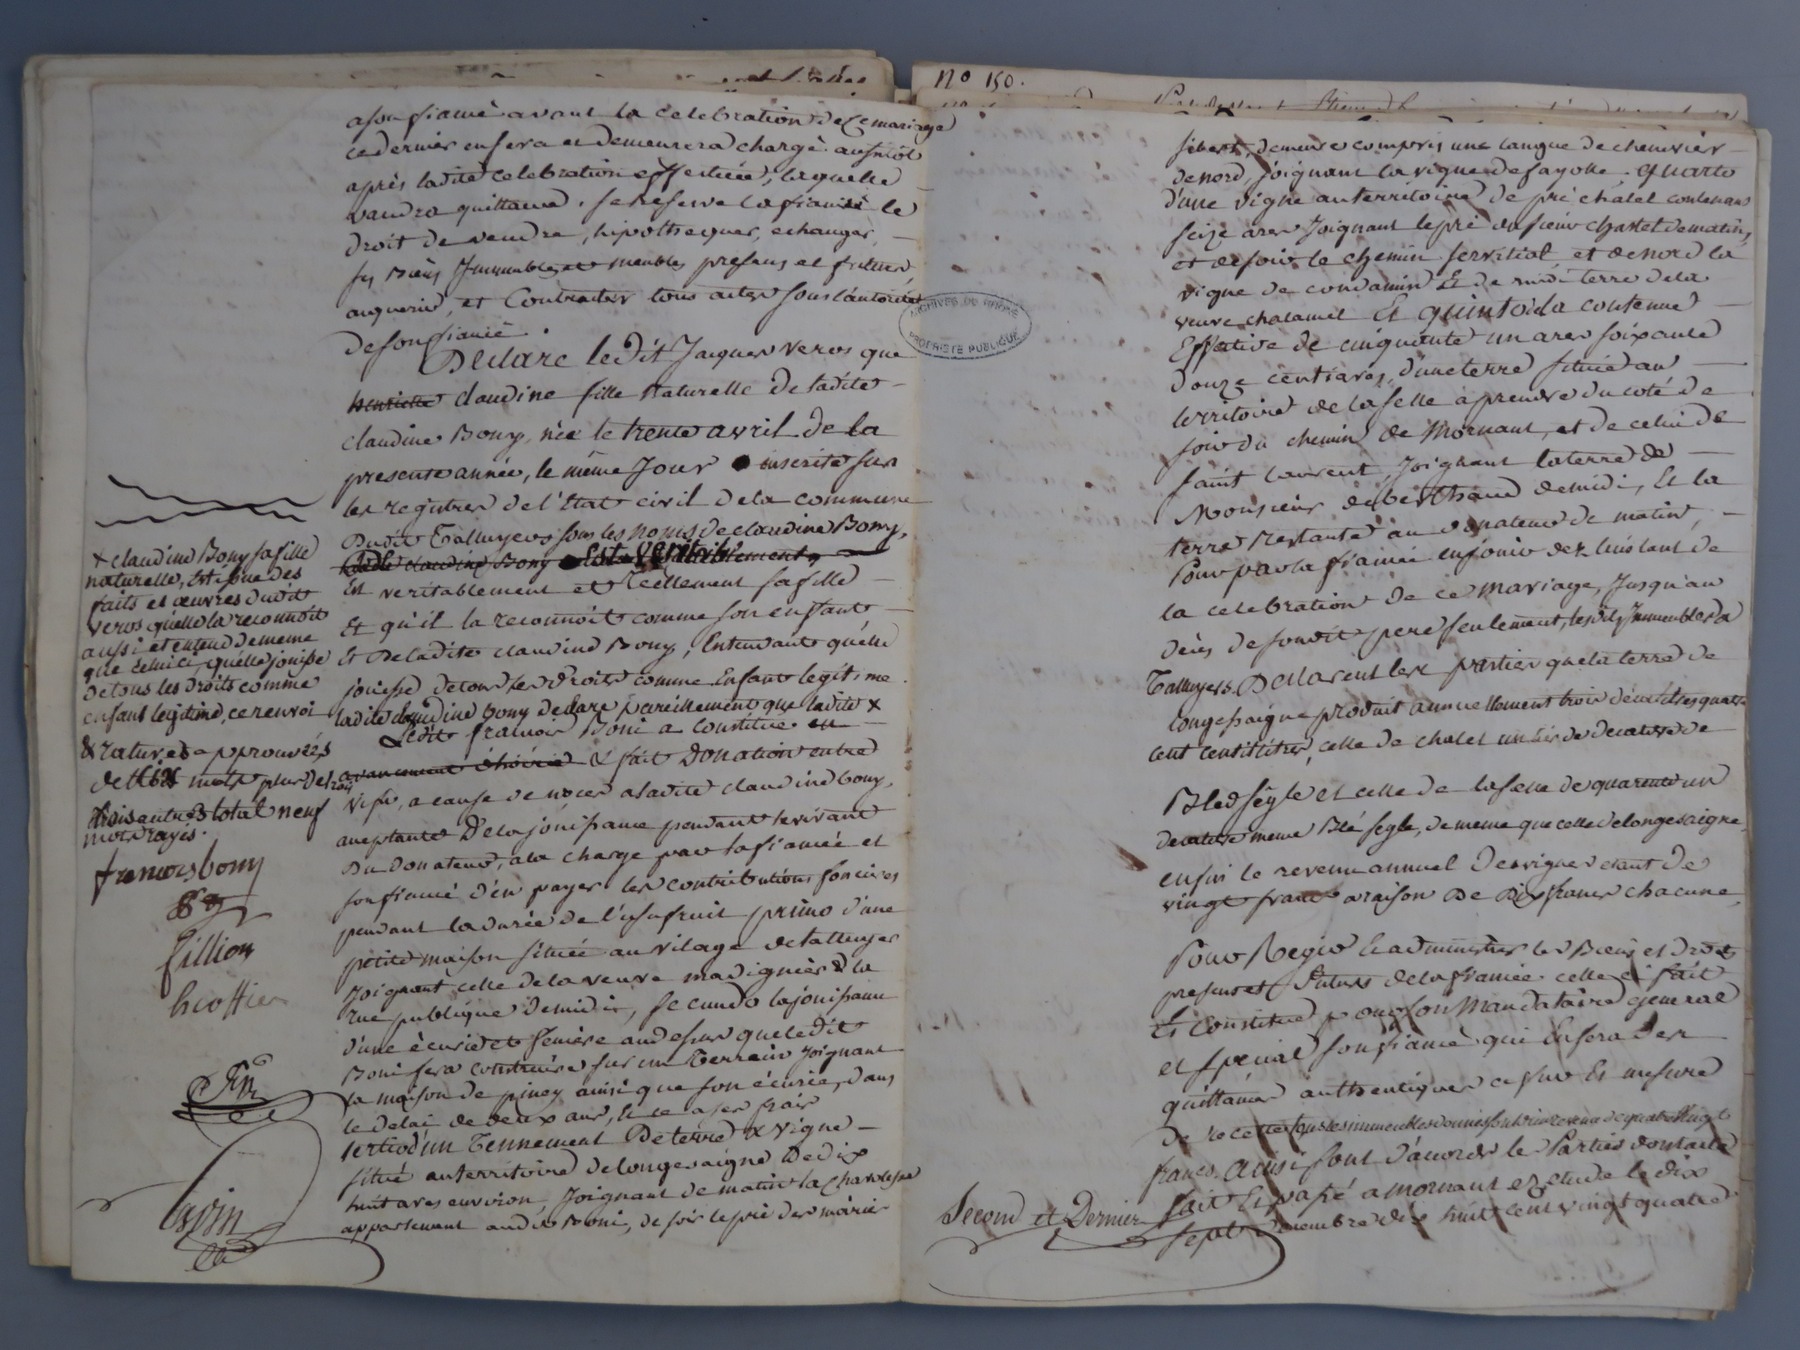 a son fiancé avant la celebration de ce mariage
ce dernier en sera et demeurera chargé aussitôt
après ladite celebration effectuée, laquelle
vaudra quittance. se reserve la fiancée le
droit de vendre, hipothequer, echanger,
ses Biens Immeubles et meubles presens et futurs
acquerir, et Contracter tous actes sous l'autorité
de son fiancé.
Declare ledit Jacques Veros que
henriette claudine fille Naturelle de ladite
claudine Bony, née le trente avril de la
presente année, le même Jour inscrite sur
les registres de l'Etat civil de la commune
dudit Talluyers sous les noms de claudine Bony,
ladite claudine Bony est veritablement
Est veritablement et Reellement sa fille
Et qu'il la reconnoit comme son enfant
Et De ladite claudine Bony, Entendant qu'elle
jouisse de tous les droits comme Enfant legitime
ladite claudine bony declare pareillement que ladite x
Ledit francois Boni a constitué en
avancement d'hoirie & fait Donation entre
vifs, a cause de noces a ladite claudine bony,
acceptante De la jouissance pendant le vivant
Du Donateur, a la charge par la fiancée et
son fiancé d'en payer les contributions foncieres
pendant la durée de l'usufruit primo d'une
petite maison située au vilage de talluyers
Joignant celle de la veuve madignier & la
rue publique de midi, secundo la jouissance
d'une écurie et feniere au dessus que ledit
Boni fera construire sur un Terrein Joignant
la maison de piney ainsi que son écurie, dans
le delai de deux ans, Et ce a ses frais
tertio d'un Tennement De terre & vigne
situé au territoire de longesaigne De dix
huit ares environ, Joignant de matin la
appartenant audit Boni, de soir le pré des
x claudine Bony sa fille
naturelle, Est issue des
faits et œuvres dudit
veros qu'elle la reconnoit
aussi et entend de meme
que celui ci, qu'elle jouisse
de tous les droits comme
enfant legitime, ce renvoi
& ratures approuvées
de six mots plus de
trois autres total neuf
mots rayés.
francois bony
fillion
Second et Dernier
N° 150.
ARCHIVES DU RHÔNE
PROPRIETE PUBLIQUE
sibert, demeure compris une langue de chenevier
de nord, joignant la vigne de fayolle. quarto
d'une vigne au territoire de pré chatel contenant
seize ares Joignant le pré du sieur chastel de matin,
et de soir le chemin servitial et de nord la
vigne de condamin Et de midi terre de la
veuve chalamel Et quinto de la contenue
Effective de cinquante un ares soixante
douze centiares, d'une terre située au
territoire de la selle à prendre du coté de
soir du chemin de Mornant, et de celui de
saint laurent, joignant la terre de
Monsieur de berthaud de midi, Et la
terre Restante au donateur de matin,
Pour par la fiancée en jouir dez l'instant de
la celebration de ce mariage, Jusqu'au
décès de sondit pere seulement, lesdits Immeubles a
Talluyers. Declarent les parties que la terre de
longessaigne produit annuellement trois décalitres quatre
cent centilitres, celle de chatel un de decalitre de
Bled segle et celle de la selle de quarante un
decalitre meme Blé segle, de meme que celle de longesaigne,
enfin le revenu annuel des vignes etant de
vingt francs a raison De Dix francs chacune,
Pour Regir Et administrer les Biens et Droits
presens et futurs de la fiancée celle ci fait
Et Constitue pour son Mandataire general
et special son fiancé qui En fera des
quittances authentiques au fur Et mesure
de recette tous les immeubles donnés sont d'un revenu de quatre vingt
francs. Ainsi sont d'accord les Parties dont acte
fait Et passé a mornant en etude le dix
sept Novembre dix huit cent vingt quatre